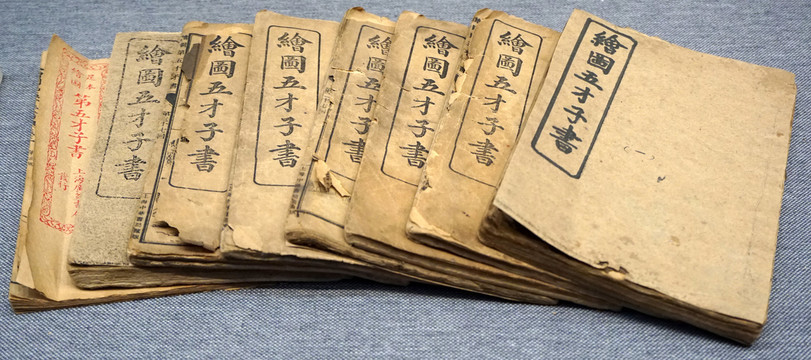 足本
繪圖
第五才子書
上海
發行
繪圖五才子書
繪圖五才子書
繪圖五才子書
繪圖五才子書
繪圖五才子書
繪圖五才子書
繪圖五才子書
(一)